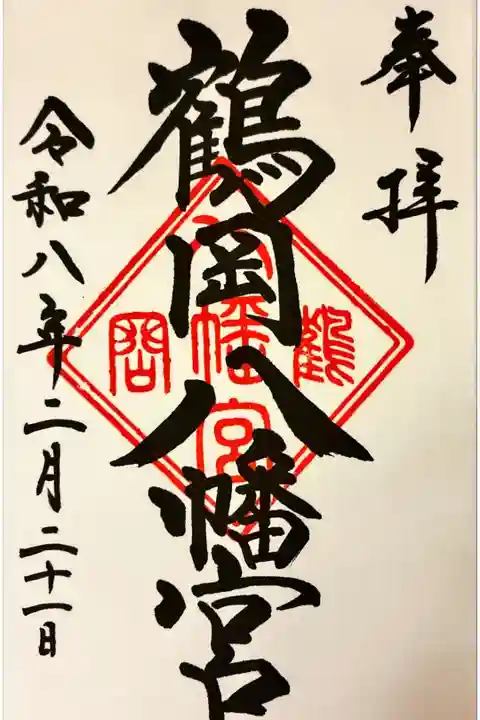 奉拝
鶴岡八幡宮
鶴
八幡宮
岡
令和八年二月二十一日